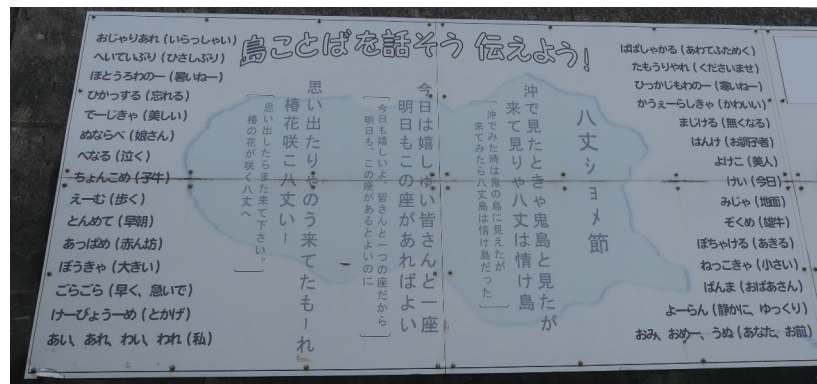 島ことばを話そう 伝えよう!
おじゃりあれ(いらっしゃい)
へいていぶり(ひさしぶり)
ほとうろわのー(暑いねー)
ひかっする(忘れる)
でーじきゃ(美しい)
ぬならべ(娘さん)
べなる(泣く)
ちょんこめ(子牛)
えーむ(歩く)
とんめて(早朝)
あっぱめ(赤ん坊)
ぼうきゃ(大きい)
ごらごら(早く、急いで)
けーびょうーめ(とかげ)
あい、あれ、わい、われ(私)
八丈ショメ節
沖で見たときゃ鬼島と見たが
来て見りゃ八丈は情け島
沖でみた時は鬼の島に見えたが
来てみたら八丈島は情け島だった
今日は嬉しゅい皆さんと一座
明日もこの座があればよい
今日も嬉しいよ、皆さんと一つの座だから
明日も、この座があるとよいのに
思い出たりゃのう来てたもーれ
椿花咲こ八丈いー
思い出したらまた来て下さい。
椿の花が咲く八丈へ
ばばしゃかる(あわてふためく)
たもうりやれ(くださいませ)
ひっかじもわのー(寒いねー)
かうぇーらしきゃ(かわいい)
まじける(無くなる)
はんけ(お調子者)
よけこ(美人)
けい(今日)
みじゃ(地面)
ぞくめ(雄牛)
ぼちゃける(あきる)
ねっこきゃ(小さい)
ばんま(おばあさん)
よーらん(静かに、ゆっくり)
おみ、おめー、うぬ(あなた、お前)